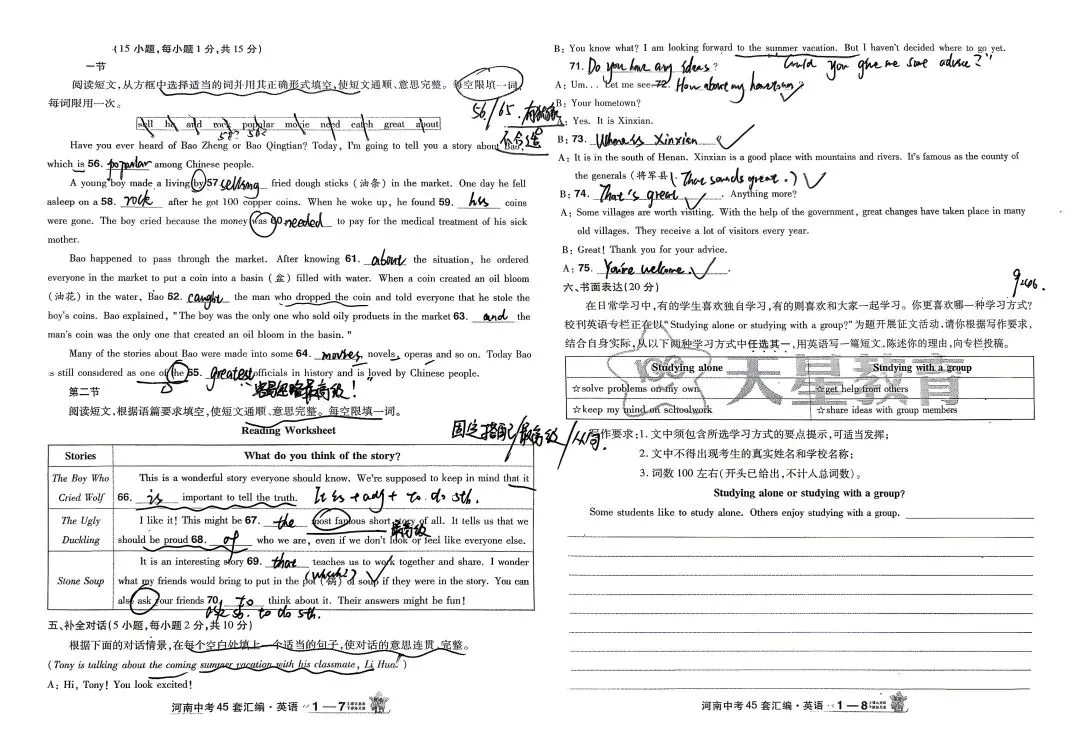 (15 小题,每小题 1 分,共 15 分)
一节
阅读短文,从方框中选择适当的词并用其正确形式填空,使短文通顺、意思完整。每空限填一词,
每词限用一次。
56/65.
sell he and rock popular movie need catch great about
58? 56?
Have you ever heard of Bao Zheng or Bao Qingtian? Today, I'm going to tell you a story about Bao,
which is 56. popular among Chinese people.
A young boy made a living by 57. selling fried dough sticks (油条) in the market. One day he fell
asleep on a 58. rock after he got 100 copper coins. When he woke up, he found 59. his coins
were gone. The boy cried because the money was 60. needed to pay for the medical treatment of his sick
mother.
Bao happened to pass through the market. After knowing 61. about the situation, he ordered
everyone in the market to put a coin into a basin (盆) filled with water. When a coin created an oil bloom
(油花) in the water, Bao 62. caught the man who dropped the coin and told everyone that he stole the
boy's coins. Bao explained, "The boy was the only one who sold oily products in the market 63. and the
man's coin was the only one that created an oil bloom in the basin."
Many of the stories about Bao were made into some 64. movies, novels, operas and so on. Today Bao
is still considered as one of the 65. greatest officials in history and is loved by Chinese people.
容易忽略最高级!
第二节
阅读短文,根据语篇要求填空,使短文通顺、意思完整。每空限填一词。
固定搭配/最高级/从句.
Reading Worksheet
Stories What do you think of the story?
The Boy Who Cried Wolf
This is a wonderful story everyone should know. We're supposed to keep in mind that it
66. is important to tell the truth. It is + adj + to do sth.
The Ugly Duckling
I like it! This might be 67. the most famous short story of all. It tells us that we
最高级
should be proud 68. of who we are, even if we don't look or feel like everyone else.
Stone Soup
It is an interesting story 69. that teaches us to work together and share. I wonder
(which?)
what my friends would bring to put in the pot (锅) of soup if they were in the story. You can
also ask your friends 70. to think about it. Their answers might be fun!
ask sb. to do sth.
五、补全对话(5 小题,每小题 2 分,共 10 分)
根据下面的对话情景,在每个空白处填上一个适当的句子,使对话的意思连贯、完整。
(Tony is talking about the coming summer vacation with his classmate, Li Hua.)
A: Hi, Tony! You look excited!
河南中考 45 套汇编·英语 1—7
B: You know what? I am looking forward to the summer vacation. But I haven't decided where to go yet.
71. Do you have any ideas? Could you give me some advice?
A: Um... Let me see. 72. How about my hometown
B: Your hometown?
A: Yes. It is Xinxian.
B: 73. Where is Xinxian
A: It is in the south of Henan. Xinxian is a good place with mountains and rivers. It's famous as the county of
the generals (将军县). (That sounds great.)
B: 74. That's great. Anything more?
A: Some villages are worth visiting. With the help of the government, great changes have taken place in many
old villages. They receive a lot of visitors every year.
B: Great! Thank you for your advice.
A: 75. You're welcome.
六、书面表达(20 分)
在日常学习中,有的学生喜欢独自学习,有的则喜欢和大家一起学习。你更喜欢哪一种学习方式?
校刊英语专栏正在以"Studying alone or studying with a group?"为题开展征文活动。请你根据写作要求,
结合自身实际,从以下两种学习方式中任选其一,用英语写一篇短文,陈述你的理由,向专栏投稿。
Studying alone Studying with a group
☆solve problems on my own ☆get help from others
☆keep my mind on schoolwork ☆share ideas with group members
天星教育
写作要求:1. 文中须包含所选学习方式的要点提示,可适当发挥;
2. 文中不得出现考生的真实姓名和学校名称;
3. 词数 100 左右(开头已给出,不计入总词数)。
Studying alone or studying with a group?
Some students like to study alone. Others enjoy studying with a group.
河南中考 45 套汇编·英语 1—8